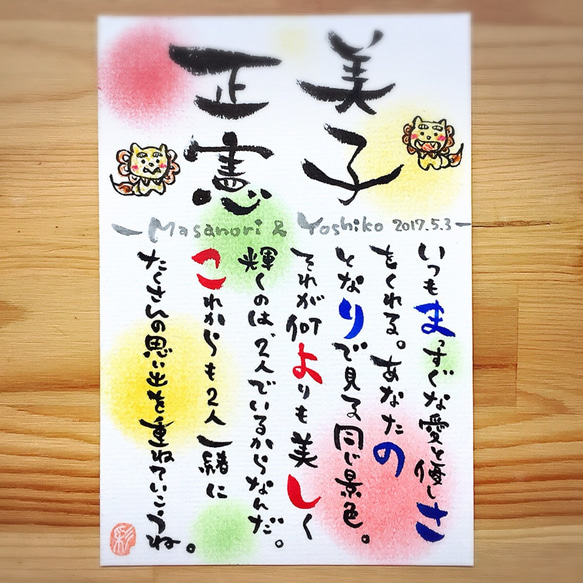 美子
正憲
Masanori & Yoshiko 2017.5.3
いつもまっすぐな愛と優しさ
をくれる。あなたの
となりで見る同じ景色。
それが何よりも美しく
輝くのは、2人でいるからなんだ。
これからも2人一緒に
たくさんの思い出を重ねていこうね。
彩